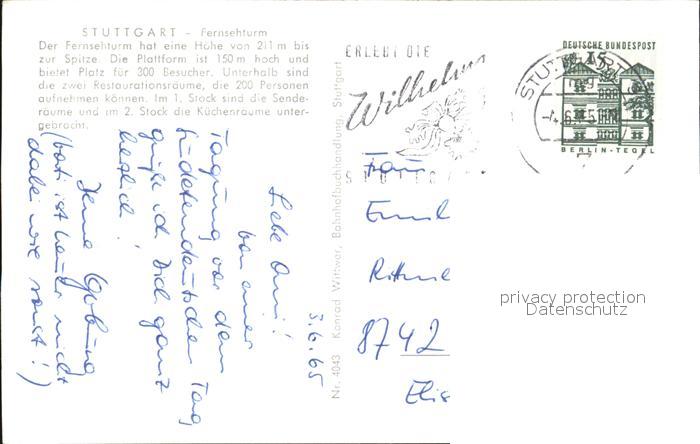 STUTTGART - Fernsehturm
Der Fernsehturm hat eine Höhe von 211 m bis
zur Spitze. Die Plattform ist 150 m hoch und
bietet Platz für 300 Besucher. Unterhalb sind
die zwei Restaurationsräume, die 200 Personen
aufnehmen können. Im 1. Stock sind die Sende-
räume und im 2. Stock die Küchenräume unter-
gebracht.
ERLEBT DIE
Wilhelma
STUTTGART
DEUTSCHE BUNDESPOST
15
BERLIN-TEGEL
3.6.65
Liebe Omi!
von einer
Tagung vor dem
Sudetendeutschen Tag
grüße ich Dich ganz
herzlich!
Deine
(bati ist heuer nicht
dabei wie sonst!)
Nr. 4043 Konrad Wittwer, Bahnhofbuchhandlung, Stuttgart
Frau
Emil
8742
privacy protection
Datenschutz